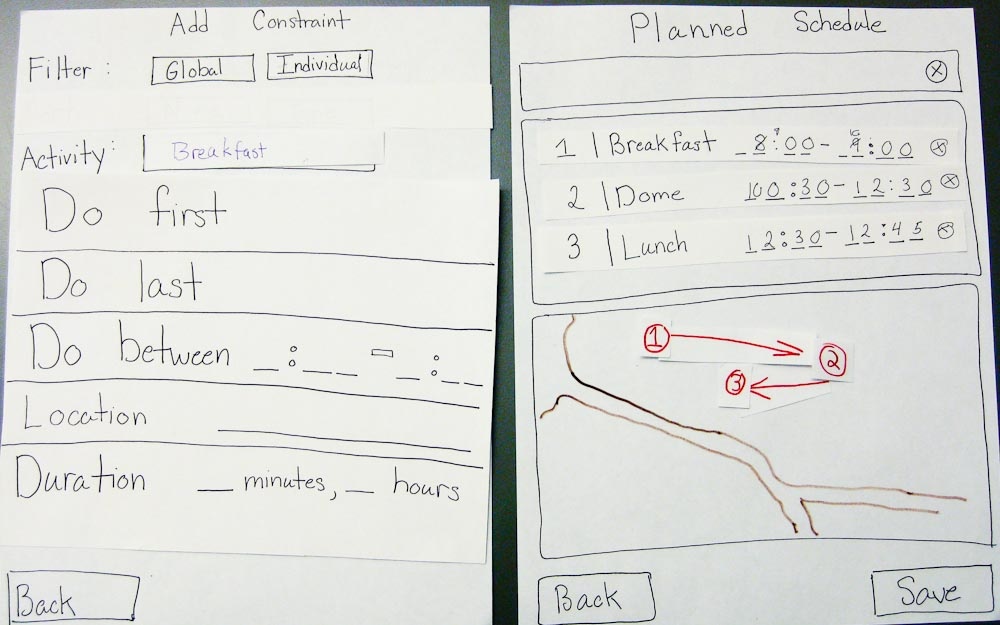 Add Constraint
Filter : Global Individual
Activity: Breakfast
Do first
Do last
Do between _:__ - _:__
Location ____
Duration _ minutes, _ hours
Back
Planned Schedule
1 | Breakfast 8:00-9:00
2 | Dome 10:30-12:30
3 | Lunch 12:30-12:45
1
2
3
Back
Save